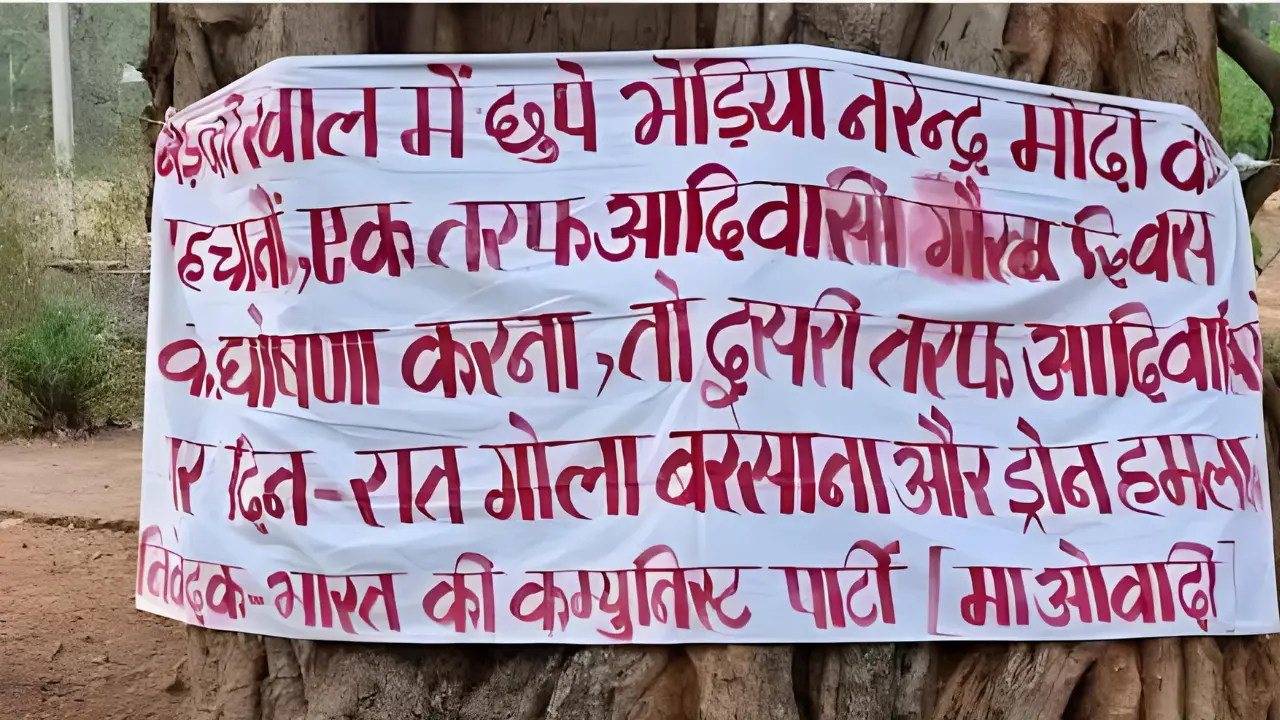 भेड़ की खाल में छुपे भेड़िया नरेन्द्र मोदी को
पहचानों, एक तरफ आदिवासी गौरव दिवस
की घोषणा करना, तो दुसरी तरफ आदिवासियों
पर दिन-रात गोला बरसाना और ड्रोन हमला
निवेदक... भारत की कम्युनिस्ट पार्टी [माओवादी]